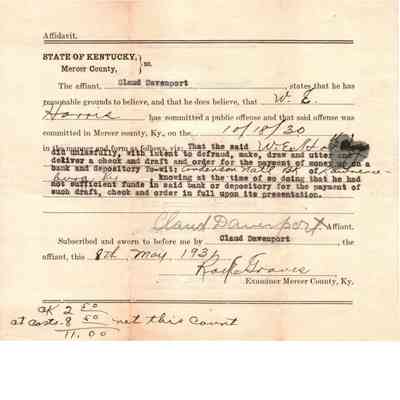 Affidavit.
STATE OF KENTUCKY, } ss.
Mercer County,
The affiant, Claud Davenport, states that he has
reasonable grounds to believe, and that he does believe, that W. E.
Harris has committed a public offense and that said offense
was committed in Mercer county, Ky., on the 10/18/30
in the manner and form as follows, viz: That the said W. E. Ha
did unlawfully, with intent to defraud, make, draw and utter and
deliver a check and draft and order for the payment of money up on a
bank and depository To-wit: Anderson Natl. Bk of Lawrence-
burg Ky knowing at the time of so doing that he had
not sufficient funds in said bank or depository for the payment of
such draft, check and order in full upon its presentation.
Claud Davenport Affiant.
Subscribed and sworn to before me by Claud Davenport, the
affiant, this 8th May 1931
Graves
Examiner Mercer County, Ky.
CK 2 50
Ct costs 8 50 not this count
11.00